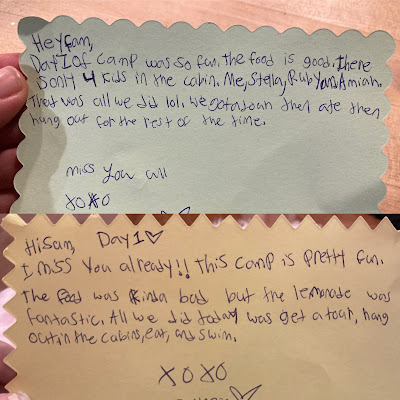 Hey fam,
Day 1 of camp was so fun. the food is good. there
is only 4 kids in the cabin. Me, Stella, Ruby and Amiah.
That was all we did lol. we got a toar then ate then
hung out for the rest of the time.
miss you all
xoxo
Hi sam, Day 1♡
I miss you already!! This camp is pretty fun.
The food was kinda bad but the lemonade was
fantastic. All we did today was get a tour, hang
out in the cabins, eat, and swim.
XOXO